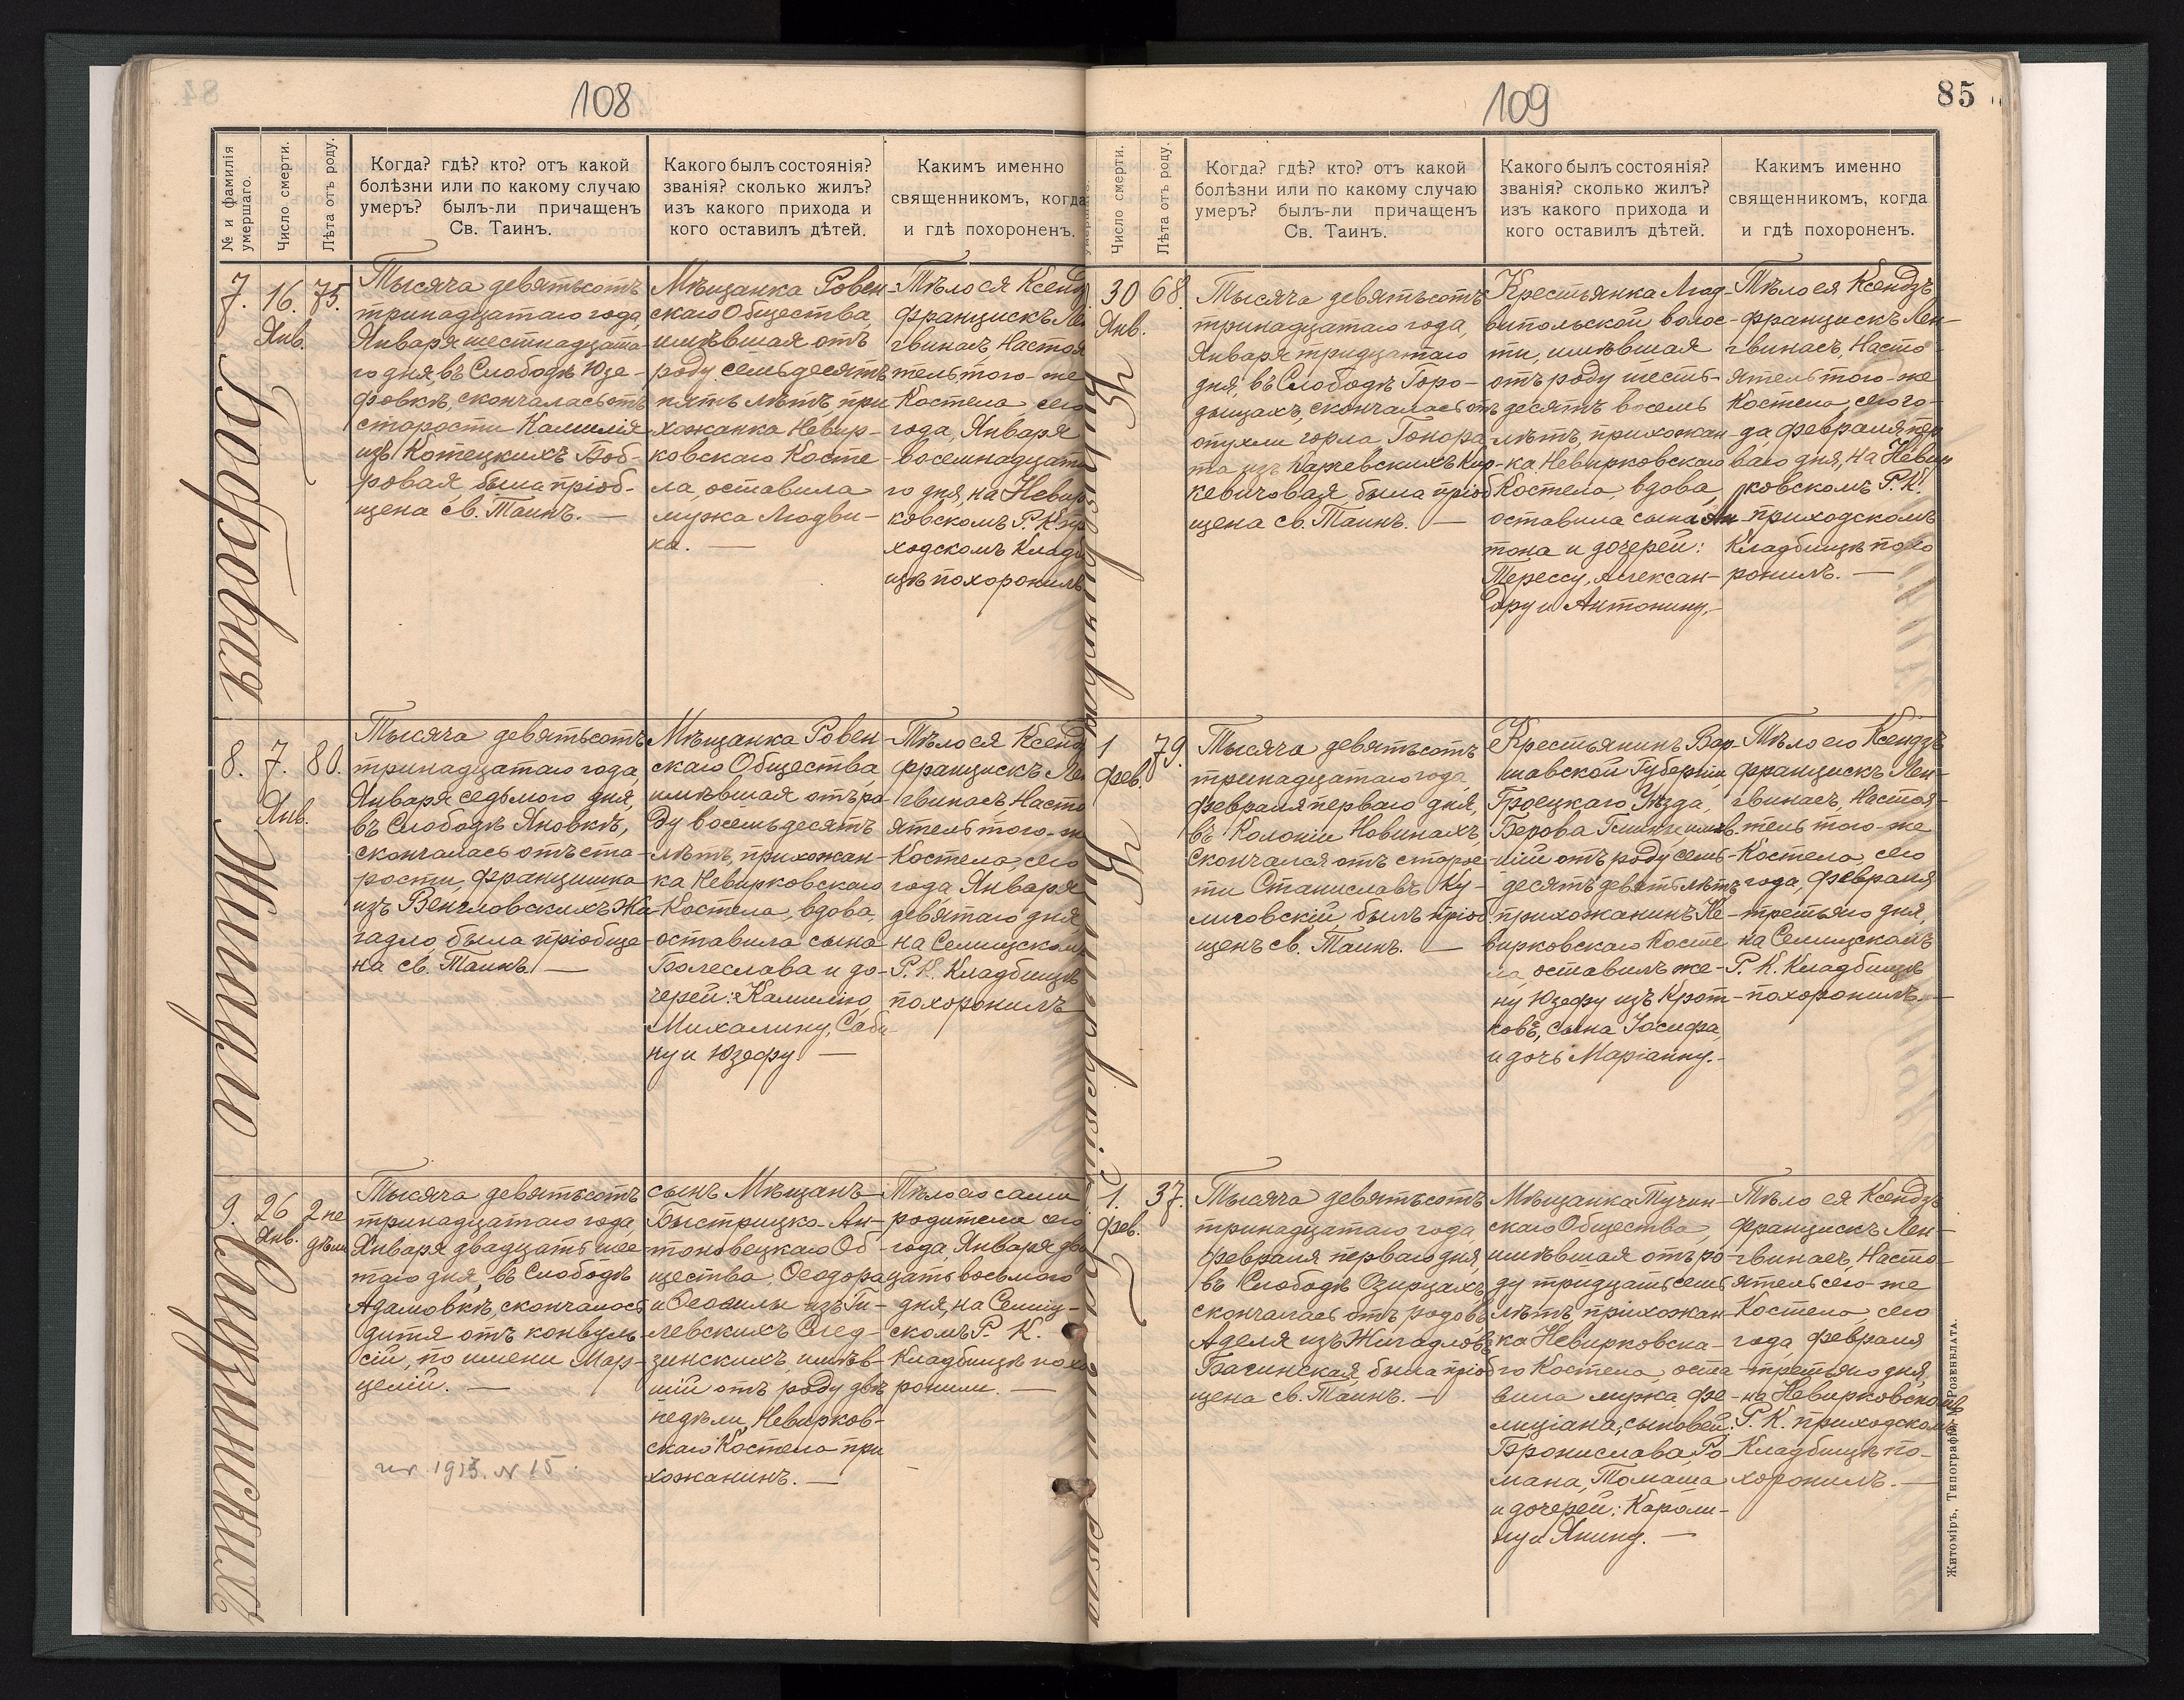 108
№ и фамилія умершаго.
Число смерти.
Лѣта отъ роду.
Когда? гдѣ? кто? отъ какой
болѣзни или по какому случаю
умеръ? былъ-ли причащенъ
Св. Таинъ.
Какого былъ состоянія?
званія? сколько жилъ?
изъ какого прихода и
кого оставилъ дѣтей.
Какимъ именно
священникомъ, когда
и гдѣ похороненъ.
7.
Бобровая
16.
Янв.
75.
Тысяча девятьсотъ
тринадцатаго года,
Января шестнадцата-
го дня, въ Слободѣ Юзе-
фовкѣ, скончалась отъ
старости Камилія
изъ Котецкихъ Боб-
ровая, была пріоб-
щена св. Таинъ. —
Мѣщанка Ровен-
скаго Общества,
имѣвшая отъ
роду семьдесятъ
пять лѣтъ, при
хожанка Невир-
ковскаго Косте-
ла, оставила
мужа Людви-
ка. —
Тѣло ея Ксенд
Францискъ Лен
гвинасъ, Настоя
тель того-же
Костела, сего
года, Января
восемнадцата
го дня, на Невир
ковскомъ Р. К. при
ходскомъ Кладб
ищѣ похоронилъ
8.
Жигадло
7.
Янв.
80.
Тысяча девятьсотъ
тринадцатаго года,
Января седьмого дня,
въ Слободѣ Яновкѣ,
скончалась отъ ста-
рости, Францишка
изъ Венгловскихъ Жи
гадло была пріобще-
на св. Таинъ. —
Мѣщанка Ровен-
скаго Общества,
имѣвшая отъ ро-
ду восемьдесятъ
лѣтъ, прихожан-
ка Невирковскаго
Костела, вдова,
оставила сына
Болеслава и до-
черей: Камилію,
Михалину, Саби
ну и Юзефу. —
Тѣло ея Ксенд
Францискъ Лен
гвинасъ Насто
ятель того-ж
Костела сего
года Января
девятаго дня
на Селищском
Р. К. Кладбищѣ
похоронилъ
9.
Следзинскихъ
26
Янв.
2 не
дѣли
Тысяча девятьсотъ
тринадцатаго года,
Января двадцать шес-
таго дня, въ Слободѣ
Адамовкѣ, скончалось
дитя отъ конвуль-
сій, по имени Мар-
целій. —
сынъ Мѣщанъ
Быстрицко-Ан-
тоновецкаго Об-
щества, Ѳеодора
и Ѳеофилы изъ Ги-
левскихъ След-
зинскихъ имѣв-
шій отъ роду двѣ
недѣли, Невирков-
скаго Костела при
хожанинъ. —
Тѣло его сами
родители сего
года, Января два
дцать восьмого
дня, на Селищ-
скомъ Р. К.
Кладбищѣ похо
ронили. —
ur. 1913. N 15.
109
85
Число смерти.
Лѣта отъ роду.
Когда? гдѣ? кто? отъ какой
болѣзни или по какому случаю
умеръ? былъ-ли причащенъ
Св. Таинъ.
Какого былъ состоянія?
званія? сколько жилъ?
изъ какого прихода и
кого оставилъ дѣтей.
Какимъ именно
священникомъ, когда
и гдѣ похороненъ.
30
Янв.
68
Тысяча девятьсотъ
тринадцатаго года,
Января тридцатаго
дня, въ Слободѣ Горо-
дищахъ, скончалась отъ
опухли горла, Гонора-
та изъ Карчевскихъ
кевичовая, была пріоб
щена св. Таинъ. —
Крестьянка Люд-
випольской волос-
ти, имѣвшая
отъ роду шесть-
десятъ восемь
лѣтъ, прихожан-
ка Невирковскаго
Костела, вдова,
оставила сына Ан-
тона и дочерей:
Терессу, Алексан-
дру и Антонину.-
Тѣло ея Ксендзъ
Францискъ Лен-
гвинасъ, Насто-
ятель того-же
Костела, сего го-
да, февраля пер
ваго дня, на Невир
ковскомъ Р. К.
приходскомъ
Кладбищѣ похо
ронилъ. —
1
фев.
79.
Тысяча девятьсотъ
тринадцатаго года,
февраля перваго дня,
въ Колоніи Новинахъ,
скончался отъ старос-
ти Станиславъ Ку-
лиговскій, былъ пріоб
щенъ св. Таинъ. —
Крестьянинъ Вар-
шавской Губерніи
Гроецкаго Уѣзда,
Гмины имѣв-
шій отъ роду семь-
десятъ девять лѣтъ
прихожанинъ Не-
вирковскаго Косте
ла, оставилъ же-
ну Юзефу изъ Крот-
ковъ, сына Іосифа,
и дочь Маріанну.-
Тѣло его Ксендзъ
Францискъ Лен-
гвинасъ, Настоя-
тель того-же
Костела, сего
года, февраля
третьяго дня,
на Селищскомъ
Р. К. Кладбищѣ
похоронилъ. —
1.
фев.
37.
Тысяча девятьсотъ
тринадцатаго года,
февраля перваго дня,
въ Слободѣ Озирцахъ,
скончалась отъ родовъ,
Аделя изъ Жигадловъ
Багинская, была пріоб
щена св. Таинъ. —
Мѣщанка Тучин-
скаго Общества,
имѣвшая отъ ро-
ду тридцать семь
лѣтъ, прихожан-
ка Невирковска-
го Костела, оста
вила мужа Фе-
лиціана, сыновей:
Бронислава, Ро-
мана, Томаша
и дочерей: Кароли-
ну и Янину. —
Тѣло ея Ксендзъ
Францискъ Лен-
гвинасъ, Насто-
ятель сего-же
Костела, сего
года февраля
третьяго дня,
на Невирковскомъ
Р. К. приходскомъ
Кладбищѣ по-
хоронилъ. —
Житоміръ, Типографія М. Розенблата.